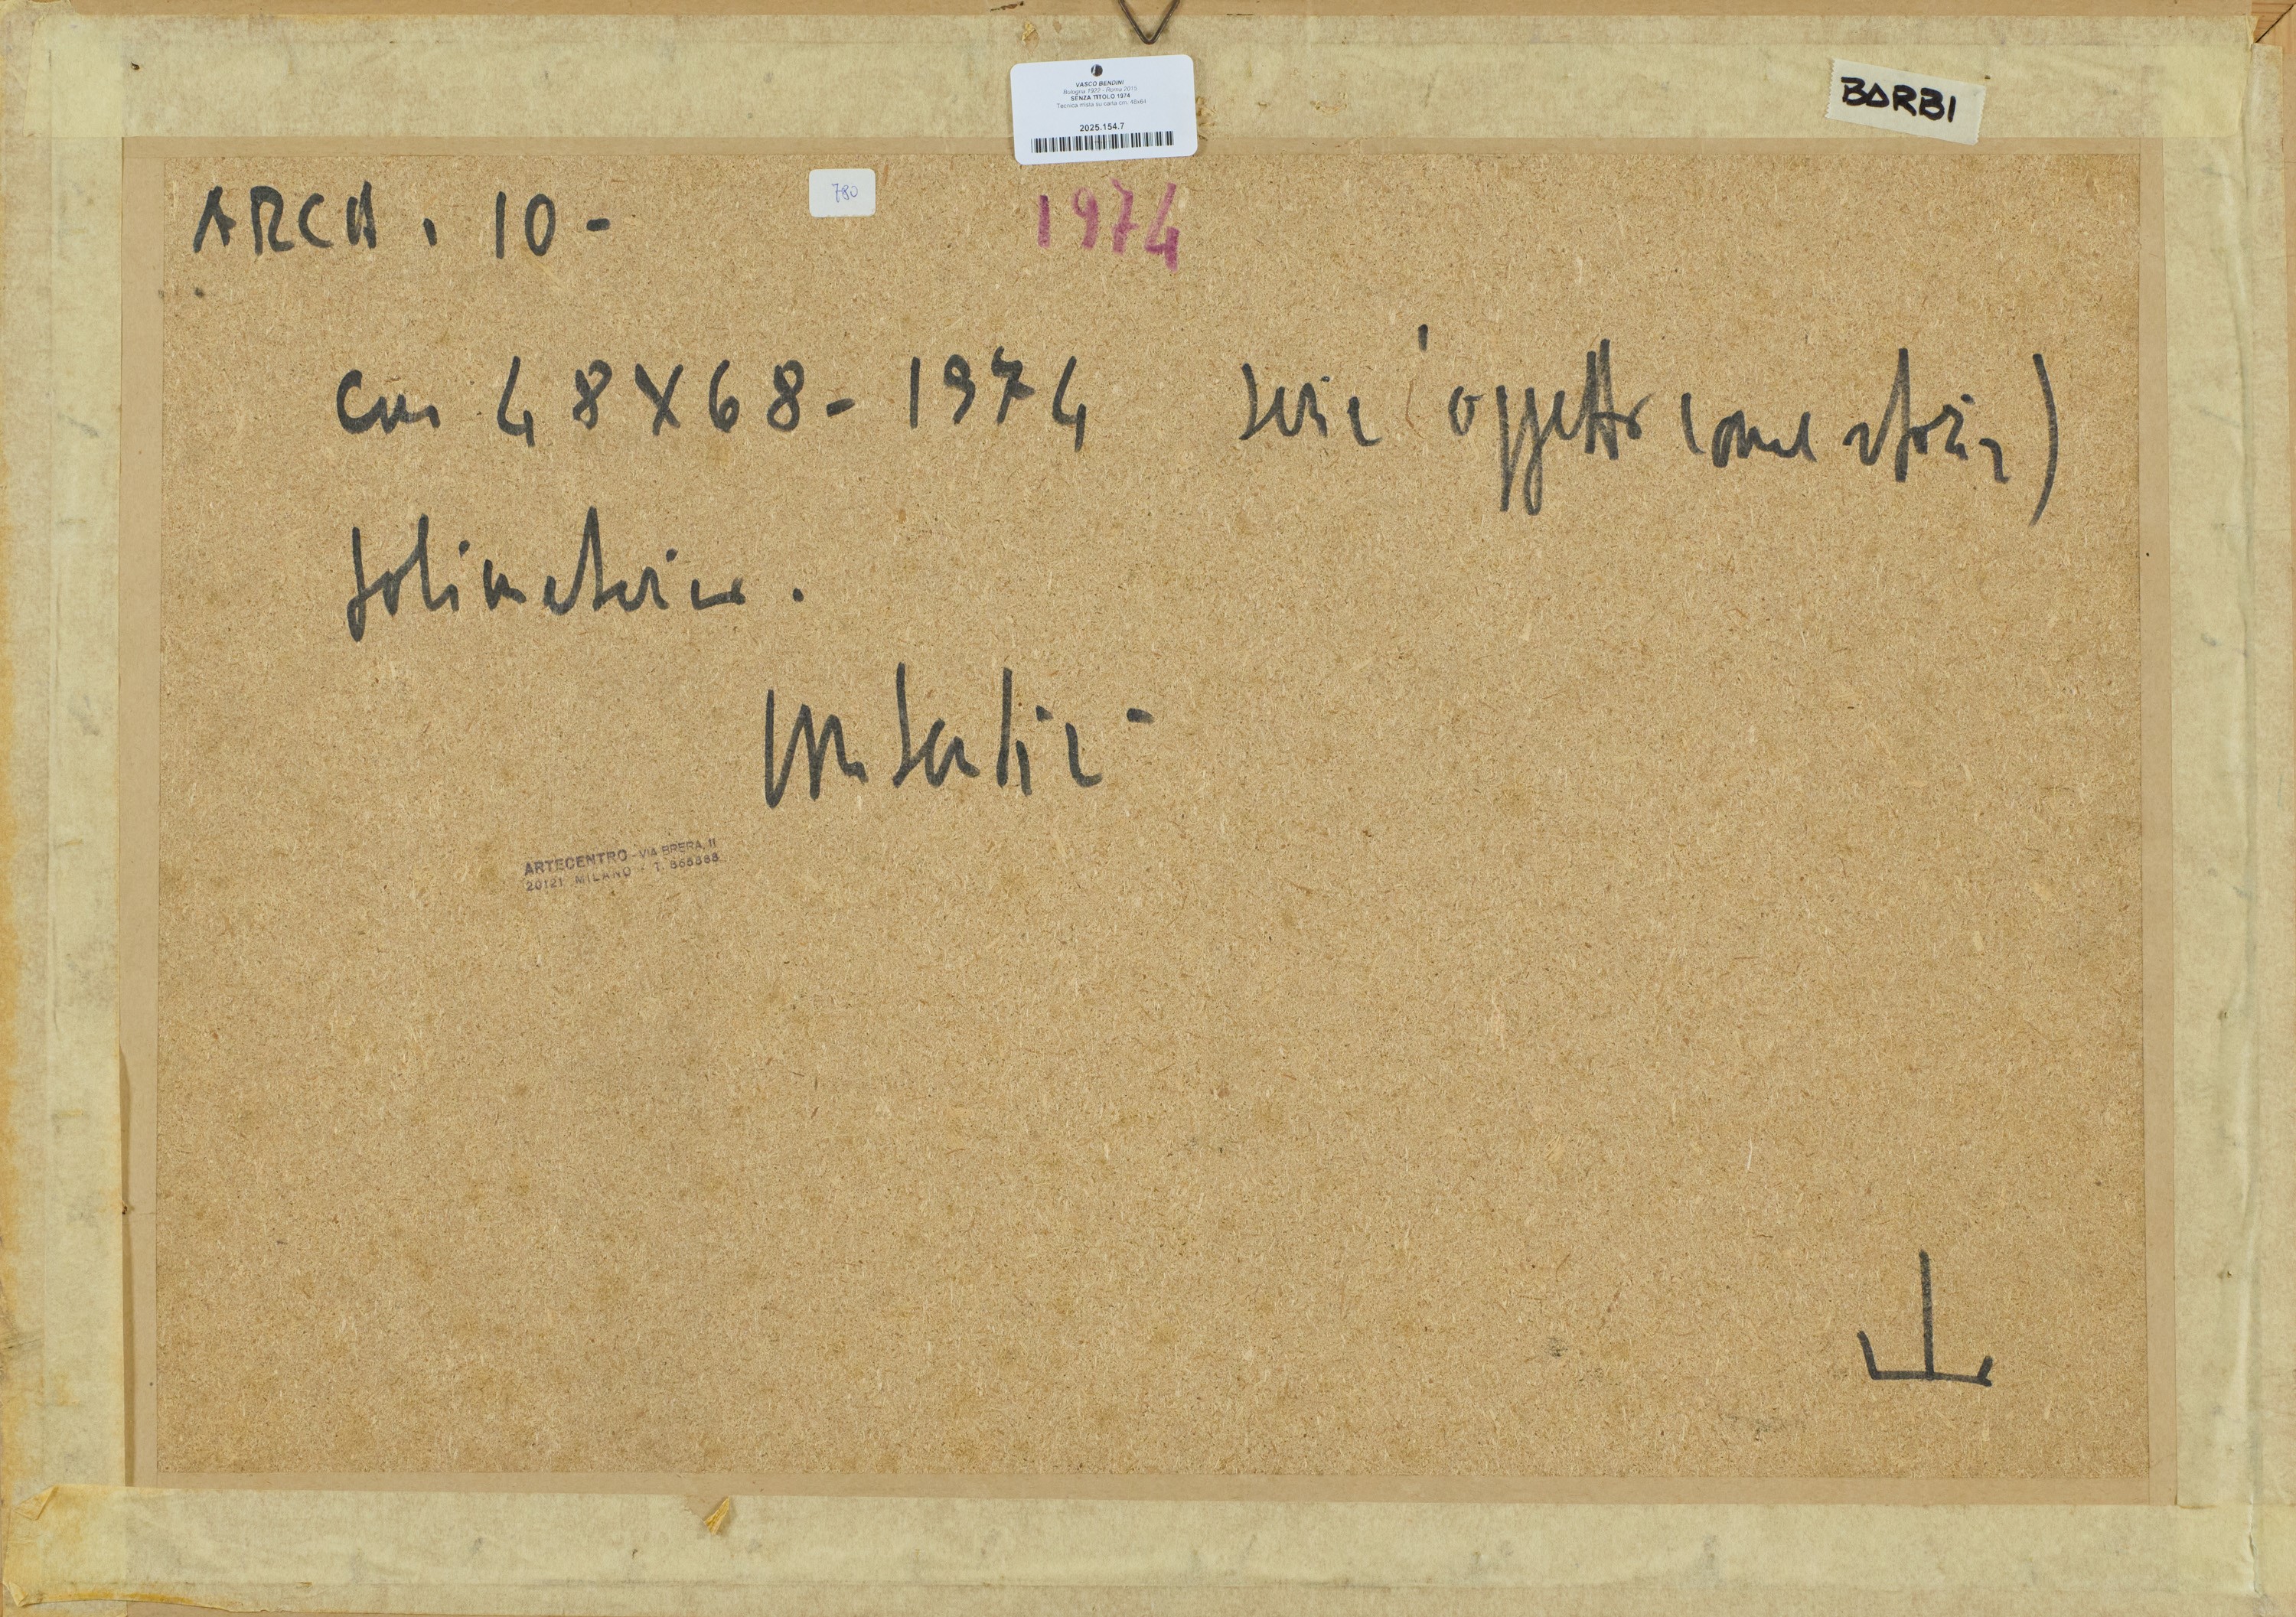 VASCO BENDINI
Bologna 1922 - Roma 2015
SENZA TITOLO 1974
Tecnica mista su carta cm. 48x64
2025.154.7
BARBI
ARCH. 10 -
780
1974
cm 48X68 - 1974 serie (oggetto come storia)
polimaterico.
ARTECENTRO - VIA BRERA, 11
20121 MILANO - T.